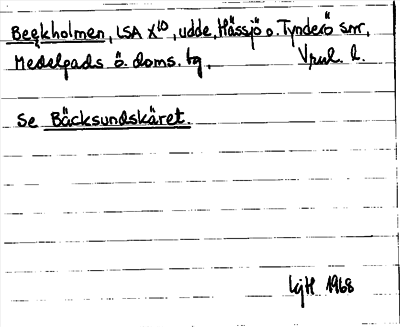 Beckholmen, LSA X¹⁰, udde, Hässjö o. Tynderö snr,
Medelpads ö. doms. tg, Vnrl. l.
Se Bäcksundskäret.
1968